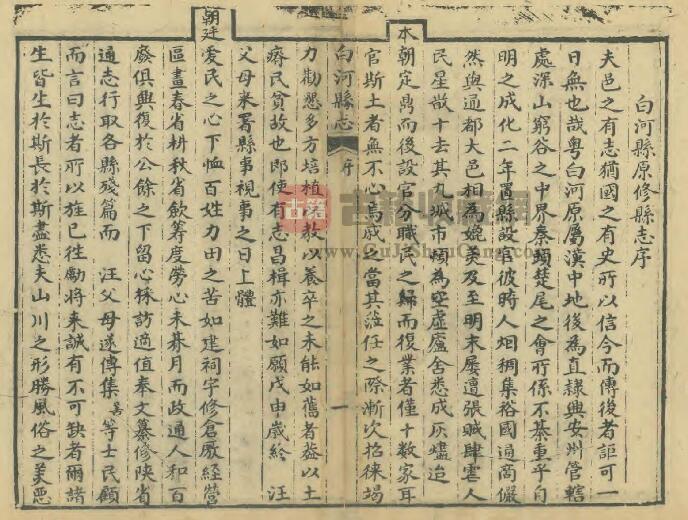 白河縣原修縣志序
夫邑之有志猶國之有史所以信今而傳後者詎可一
日無也哉粵白河原屬漢中地後為直隸興安州管轄
處深山窮谷之中界秦頭楚尾之會所係不綦重乎自
明之成化二年置縣設官彼時人烟稠集裕國通商儼
然與通都大邑相為媲美及至明末屢遭張賊肆虐人
民星散十去其九城市頓為空虛廬舍悉成灰燼迨
本朝定鼎而後設官分職民之歸而復業者僅十數家耳
官斯土者無不心焉戚之當其蒞任之際漸次招徠竭
白河縣志
序
一
力勸懇多方培植教以養卒之未能如舊者蓋以土
瘠民貧故也即使有志昌楫亦難如願戊申歲給 汪
父母來署縣事視事之日上體
朝廷愛民之心下恤百姓力田之苦如建祠宇修倉厫經營
區畫春省耕秋省斂籌度勞心未朞月而政通人和百
廢俱興復於公餘之下留心採訪適值奉文纂修陝省
通志行取各縣殘篇而 汪父母遂傳集 等士民顧
而言曰志者所以旌已徃勵將來誠有不可缺者爾諸
生皆生於斯長於斯盡悉夫山川之形勝風俗之美惡
古籍
古籍收藏网
www.GuJiShouCang.com